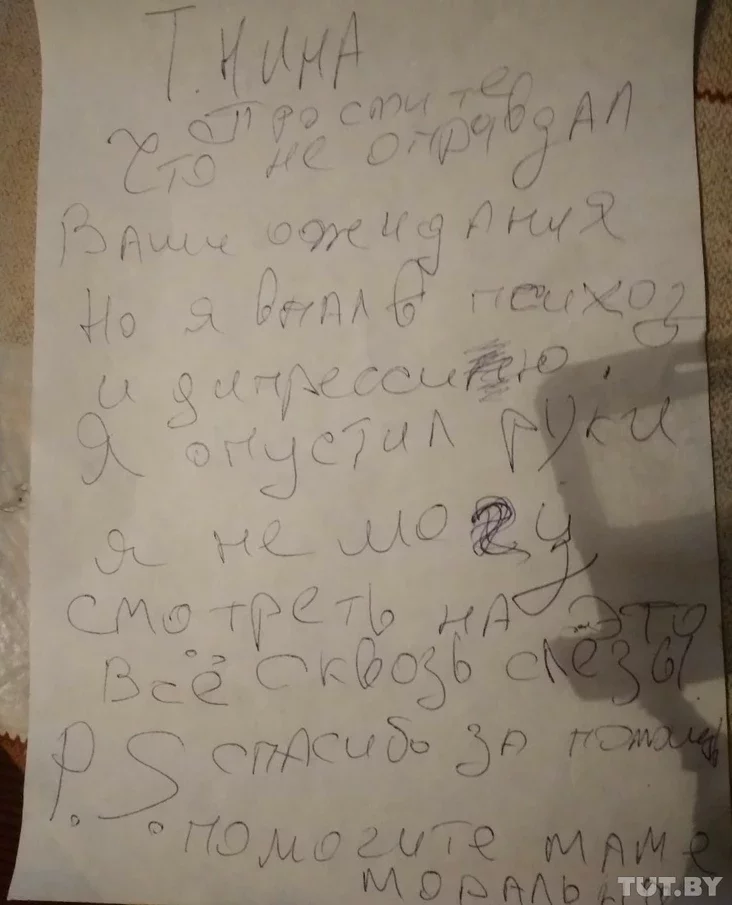 Т. НИНА
Простите
Что не оправдал
Ваши ожидания
Но я впал в психоз
и дипрессию.
Я опустил руки
я не могу
смотреть на это
Всё сквозь слёзы
P.S. спасибо за помощь
помогите маме
морально
TUT.BY